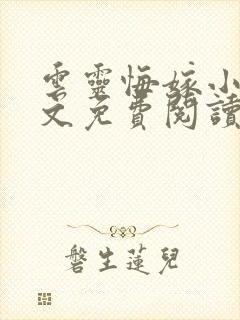 雲靈悔嫁小
文免費閱讀
磐生蓮兒